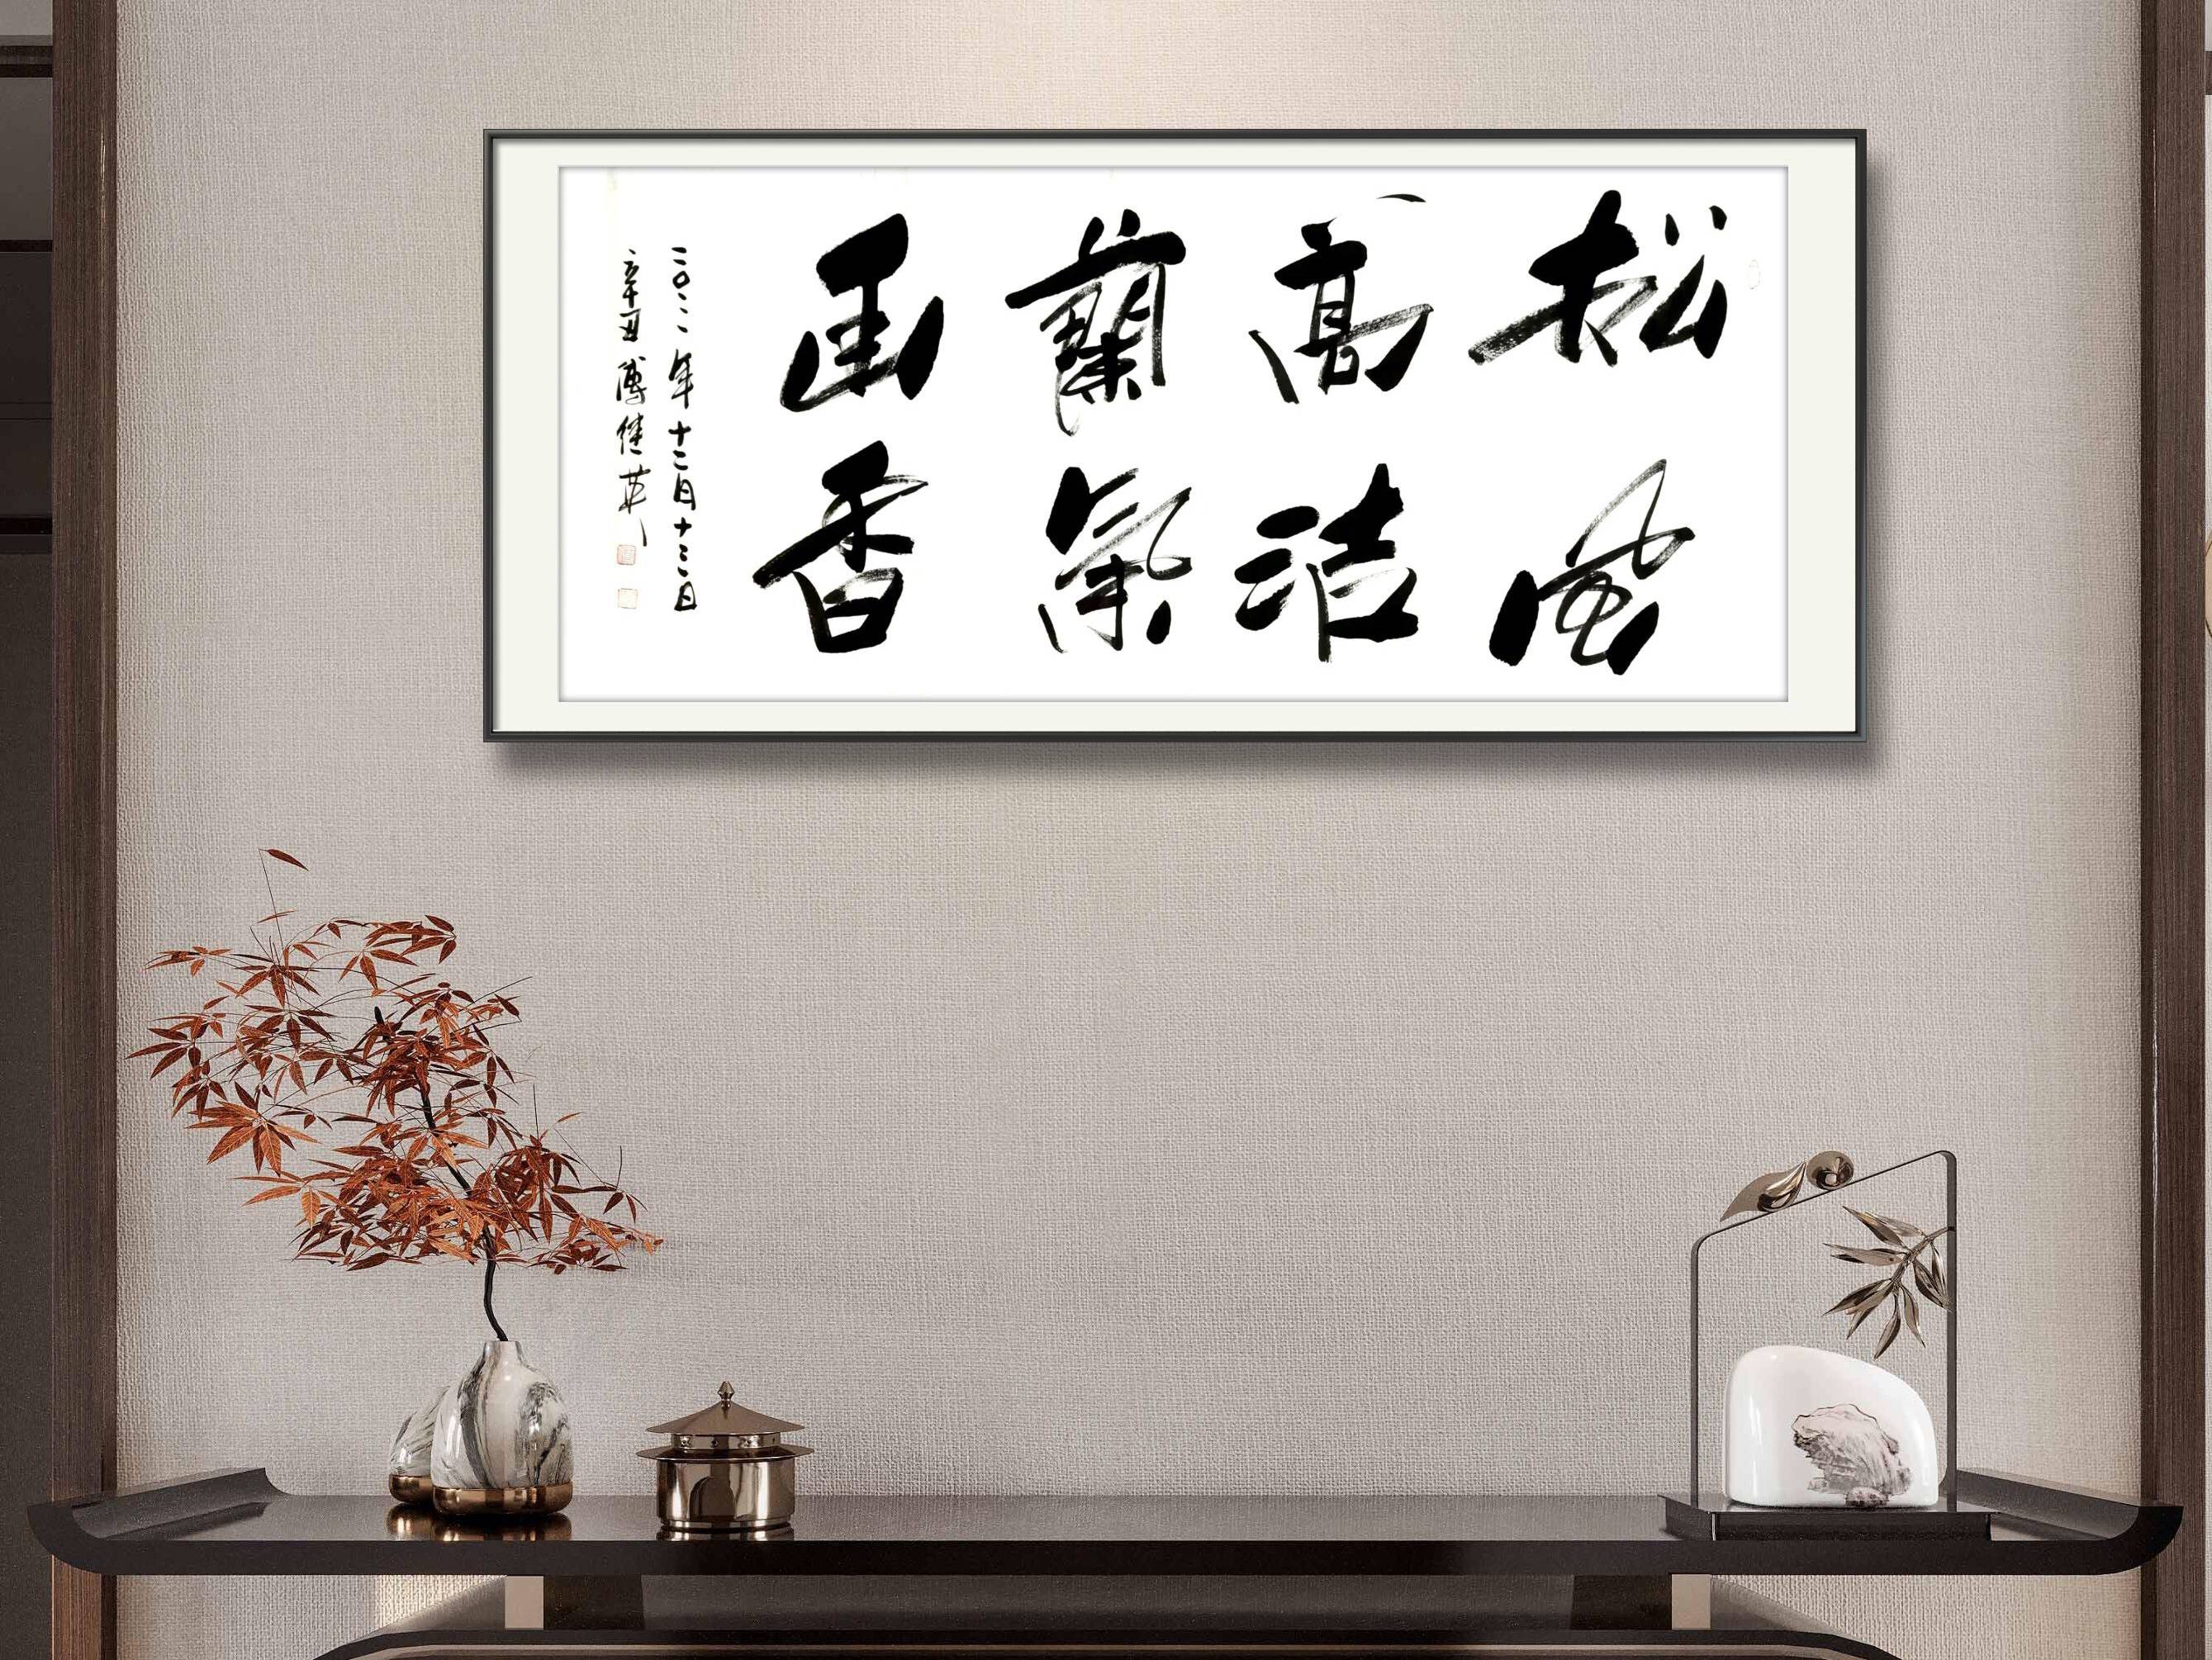 松風
高洁
蘭氣
幽香
二〇二一年十二月十三日
辛丑 傅 英